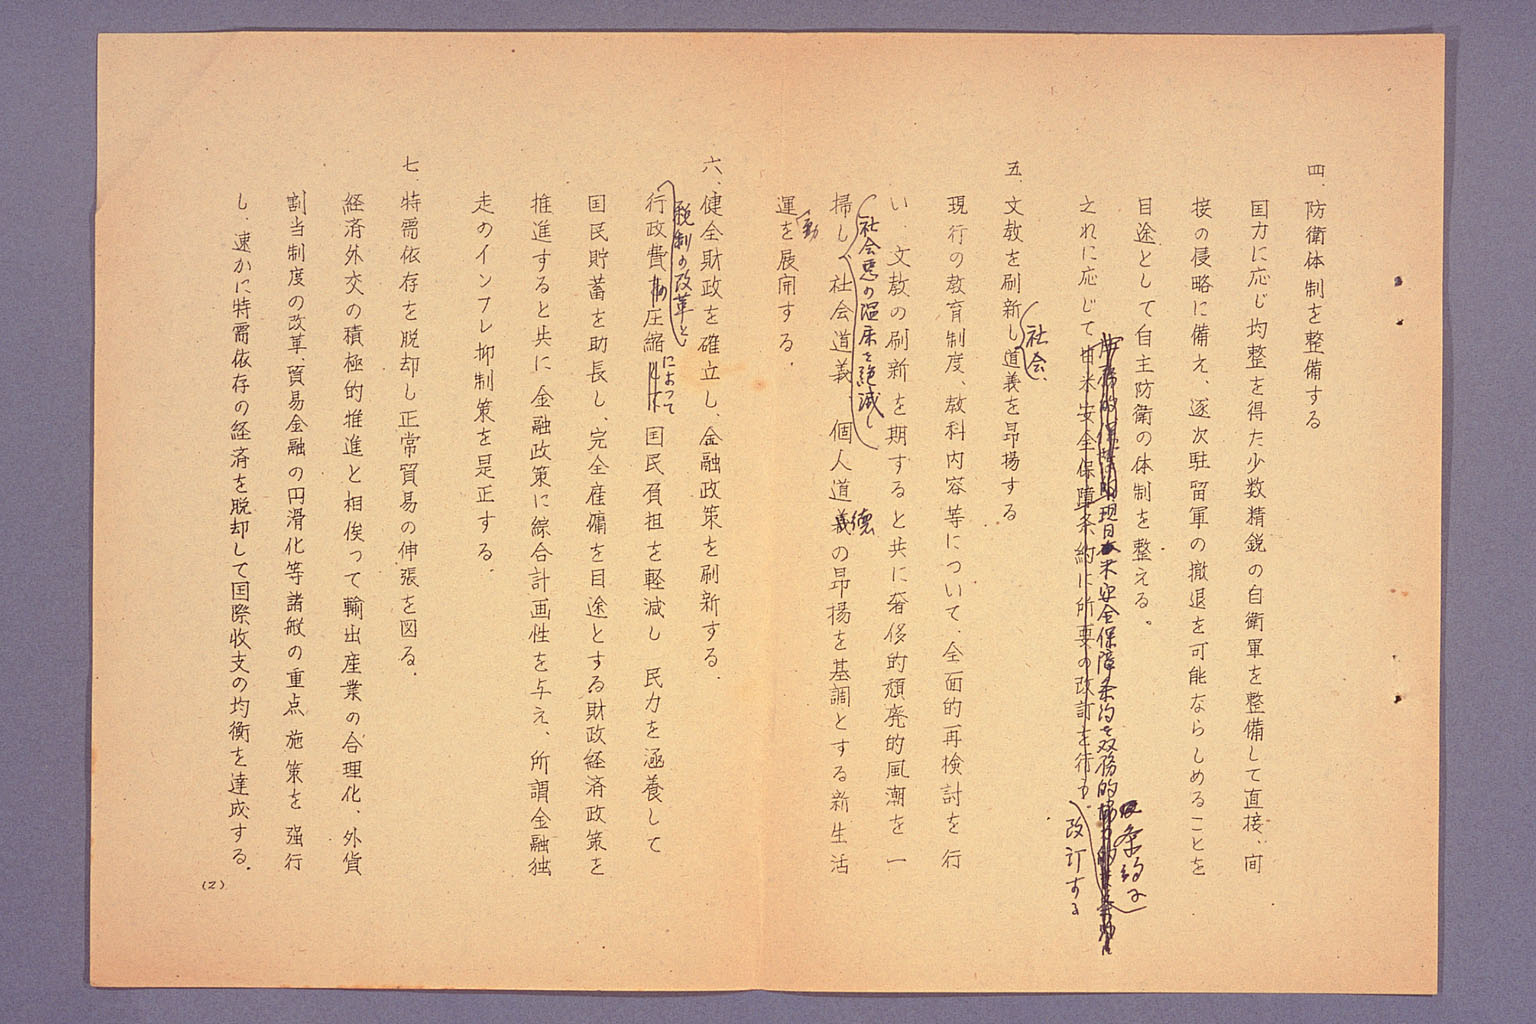 四.防衛体制を整備する
国力に応じ均整を得た少数精鋭の自衛軍を整備して直接、間
接の侵略に備え、逐次駐留軍の撤退を可能ならしめることを
目途として自主防衛の体制を整える。
現日米安全保障条約を双務的
条約に
之れに応じて日米安全保障条約に所要の改訂を行う。
改訂する
五.文教を刷新し道義を昂揚する
社会、
現行の教育制度、教科内容等について、全面的再検討を行
い、文教の刷新を期すると共に奢侈的頽廃的風潮を一
社会悪の温床を絶滅し
掃し、社会道義、個人道義の昂揚を基調とする新生活
徳
運を展開する.
動
六、健全財政を確立し、金融政策を刷新する.
税制の改革と
行政費の圧縮 国民負担を軽減し 民力を涵養して
によって
国民貯蓄を助長し、完全雇傭を目途とする財政経済政策を
推進すると共に 金融政策に綜合計画性を与え、所謂金融独
走のインフレ抑制策を是正する.
七.特需依存を脱却し正常貿易の伸張を図る.
経済外交の積極的推進と相俟って輸出産業の合理化、外貨
割当制度の改革、貿易金融の円滑化等諸般の重点施策を強行
し.速かに特需依存の経済を脱却して国際収支の均衡を達成する.
(2)